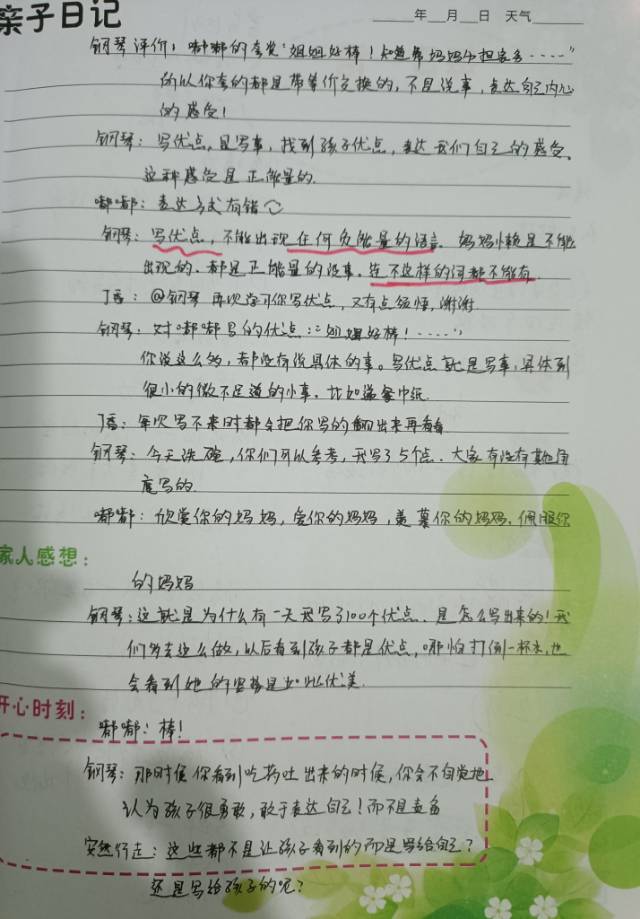 亲子日记
年 月 日 天气
钢琴评价：嘟嘟的鉴赏"姐姐好棒！知道帮妈妈分担家务....."
所以你套的都是带等价交换的，不是说事，表达自己内心
的感受！
钢琴：写优点，是写事，找到孩子优点，表达我们自己的感受。
这种感受是正能量的.
嘟嘟：表达方式有错
钢琴：写优点，不能出现任何负能量的语言. 妈妈懒是不能
出现的. 都是正能量的故事. 连不这样的词都不能有.
丁香：@钢琴 再次学习你写优点，又有点领悟，谢谢
钢琴：对嘟嘟写的优点："姐姐好棒！....."
你说这么多，都没有说具体的事。写优点就是写事，具体到
很小的微不足道的小事. 比如递餐巾纸
丁香：每次写不来时都会把你写的翻出来再看看
钢琴：今天洗碗，你们可以参考，我写了5个点. 大家有没有其他角
度写的
嘟嘟：欣赏你的妈妈，爱你的妈妈，羡慕你的妈妈. 佩服你
家人感想：
的妈妈
钢琴：这就是为什么有一天我写了100个优点. 是怎么写出来的！我
们穷去这么做，以后看到孩子都是优点，哪怕打倒一杯水，也
会看到她的坚持是如此优美.
开心时刻：
嘟嘟：棒！
钢琴：那时候你看到吃药吐出来的时候，你会不自觉地
认为孩子很勇敢，敢于表达自己！而不是责备
安然行走：这些都不是让孩子看到的而是写给自己？
还是写给孩子的呢？